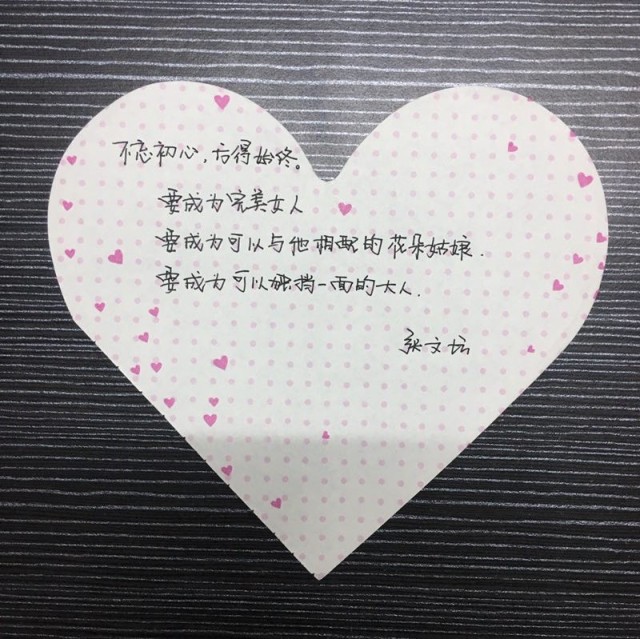 不忘初心，方得始终。
要成为完美女人
要成为可以与他相配的花朵姑娘.
要成为可以独挡一面的大人.
张文坛